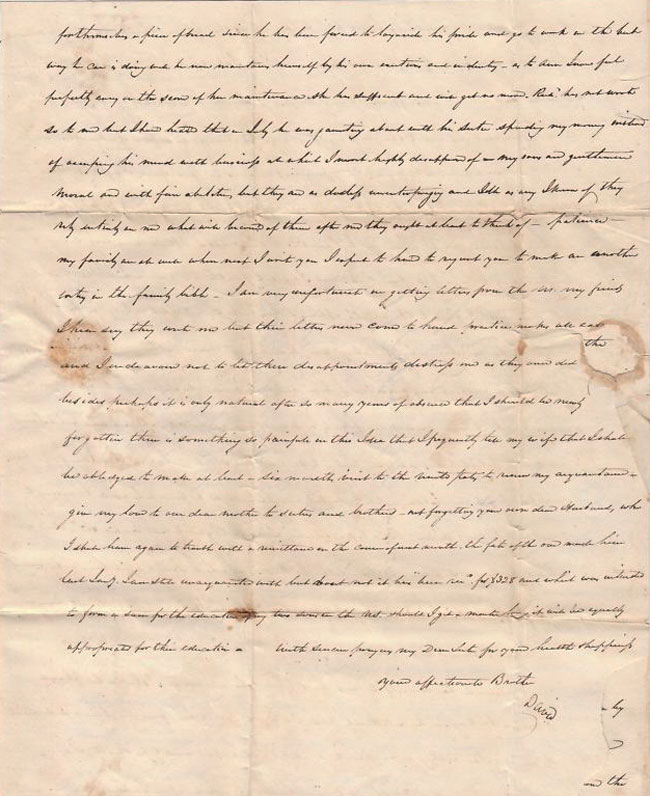 for themselves a piece of bread since he has been forced to lay aside his pride and go to work in the best
way he can is doing and he now maintains himself by his own exertions and industry - as to Ann I now feel
perfectly easy on the score of her maintenance she has sufficient and will get no more. has not wrote
so to me but I have heard that in July he was about with his sister spending my money instead
of occupying his mind with business at which I most highly disapprove of my sons are gentlemen
moral and with fine abilities but they are as and Idle as any I know of they
rely entirely on me what will become of them after me they ought at least to think of - patience -
my family are all well when next I write you I expect to have to request you to make an another
entry in the family bible - I am very unfortunate in getting letters from the US. very friends
I hear say they wrote me but their letters never come to hand practice makes all easy
the
and I endeavour not to let these disappointments distress me as they once did
besides perhaps it is only natural after so many years of absence that I should be nearly
forgotten there is something so painful in this Idea that I frequently tell my wife that I shall
be obliged to make at least a six months visit to the to renew my acquaintance -
give my love to our dear mother to sisters and brothers - not forgetting your own dear Husband, who
I shall have again to trouble with a remittance in the course of next month. the fate of the one made him
last I am still unacquainted with but doubt not it has been recd. for $328 and which was intended
to form a sum for the education of my two sons in the US. should I get a it will be equally
appropriated for their education - With sincere prayers my Dear Sister for your health & happiness
Your affectionate Brother
David
by
on the